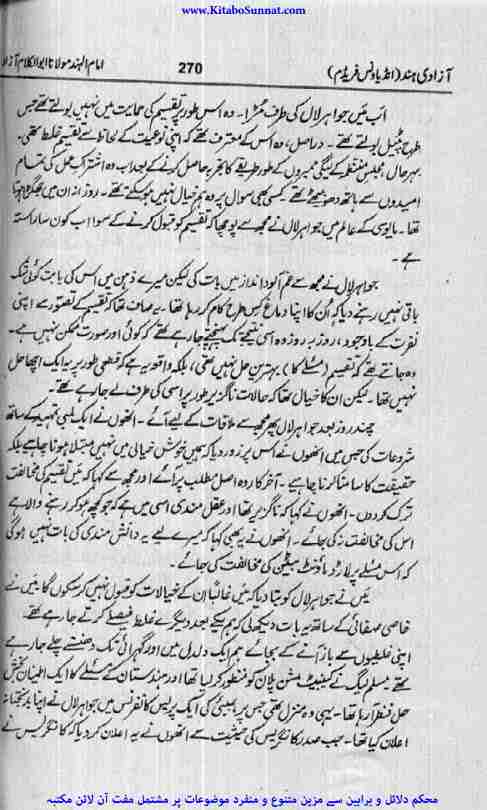 www.KitaboSunnat.com
آزادی ہند (انڈیا ونس فریڈم) 270 امام الہند مولانا ابوالکلام آزاد
اب میں جواہر لال کی طرف مڑا۔ وہ اس طور پر تقسیم کی حمایت میں نہیں بولتے تھے جس
طرح پٹیل بولتے تھے۔ دراصل، وہ اس کے معترف تھے کہ اپنی نوعیت کے لحاظ سے تقسیم غلط تھی۔
بہرحال، مجلس منتظمہ کے لیگی ممبروں کے طور طریقے کا تجربہ حاصل کرنے کے بعد اب وہ اشتراک عمل کی تمام
امیدوں سے ہاتھ دھو بیٹھے تھے۔ کسی بھی سوال پر وہ ہم خیال نہیں ہو سکتے تھے۔ روزانہ ان میں جھگڑا ہوتا
تھا۔ مایوسی کے عالم میں جواہر لال نے مجھ سے پوچھا کہ تقسیم کو قبول کرنے کے سوا اب کون سا راستہ
ہے۔
جواہر لال نے مجھ سے غم آلود انداز میں بات کی لیکن میرے ذہن میں اس کی بابت کوئی شک
باقی نہیں رہنے دیا کہ اُن کا اپنا دماغ کس طرح کام کر رہا تھا۔ یہ صاف تھا کہ تقسیم کے تصور سے اپنی
نفرت کے باوجود، روز بہ روز وہ اسی نتیجے تک پہنچتے جا رہے تھے کہ کوئی اور صورت ممکن نہیں ہے۔
وہ جانتے تھے کہ تقسیم (مسئلے کا) بہترین حل نہیں تھی، بلکہ واقعہ یہ ہے کہ قطعی طور پر یہ ایک اچھا حل
نہیں تھا۔ لیکن ان کا خیال تھا کہ حالات ناگزیر طور پر اسی کی طرف لے جا رہے تھے۔
چند روز بعد جواہر لال پھر مجھ سے ملاقات کے لیے آئے۔ انھوں نے ایک لمبی تمہید کے ساتھ
شروعات کی جس میں انھوں نے اس پر زور دیا کہ ہمیں خوش خیالی میں نہیں مبتلا ہونا چاہیے بلکہ
حقیقت کا سامنا کرنا چاہیے۔ آخرکار وہ اصل مطلب پر آئے اور مجھ سے کہا کہ میں تقسیم کی مخالفت
ترک کردوں۔ انھوں نے کہا کہ یہ ناگزیر تھا اور عقل مندی اسی میں ہے کہ جو کچھ ہو کر رہنے والا ہے
اس کی مخالفت نہ کی جائے۔ انھوں نے یہ بھی کہا کہ میرے لیے یہ دانش مندی کی بات نہیں ہوگی
کہ اس مسئلے پر لارڈ ماؤنٹ بیٹن کی مخالفت کی جائے۔
میں نے جواہر لال کو بتا دیا کہ میں غالباً ان کے خیالات کو قبول نہیں کر سکوں گا۔ میں نے
خاصی صفائی کے ساتھ یہ بات دیکھ لی کہ ہم یکے بعد دیگرے غلط فیصلے کرتے جا رہے تھے۔
اپنی غلطیوں سے باز آنے کے بجائے ہم ایک دلدل میں اور گہرائی تک دھنستے چلے جا رہے
تھے۔ مسلم لیگ نے کیبینٹ مشن پلان کو منظور کر لیا تھا اور ہندستان کے مسئلے کا ایک اطمینان بخش
حل نظر آ رہا تھا۔ یہی وہ منزل تھی جس پر بمبئی کی ایک پریس کانفرنس میں جواہر لال نے اپنا بدبختانہ
اعلان کیا تھا۔ جب صدر کانگریس کی حیثیت سے انھوں نے یہ اعلان کر دیا کہ کانگریس نے
محکم دلائل و براہین سے مزین متنوع و منفرد موضوعات پر مشتمل مفت آن لائن مکتبہ